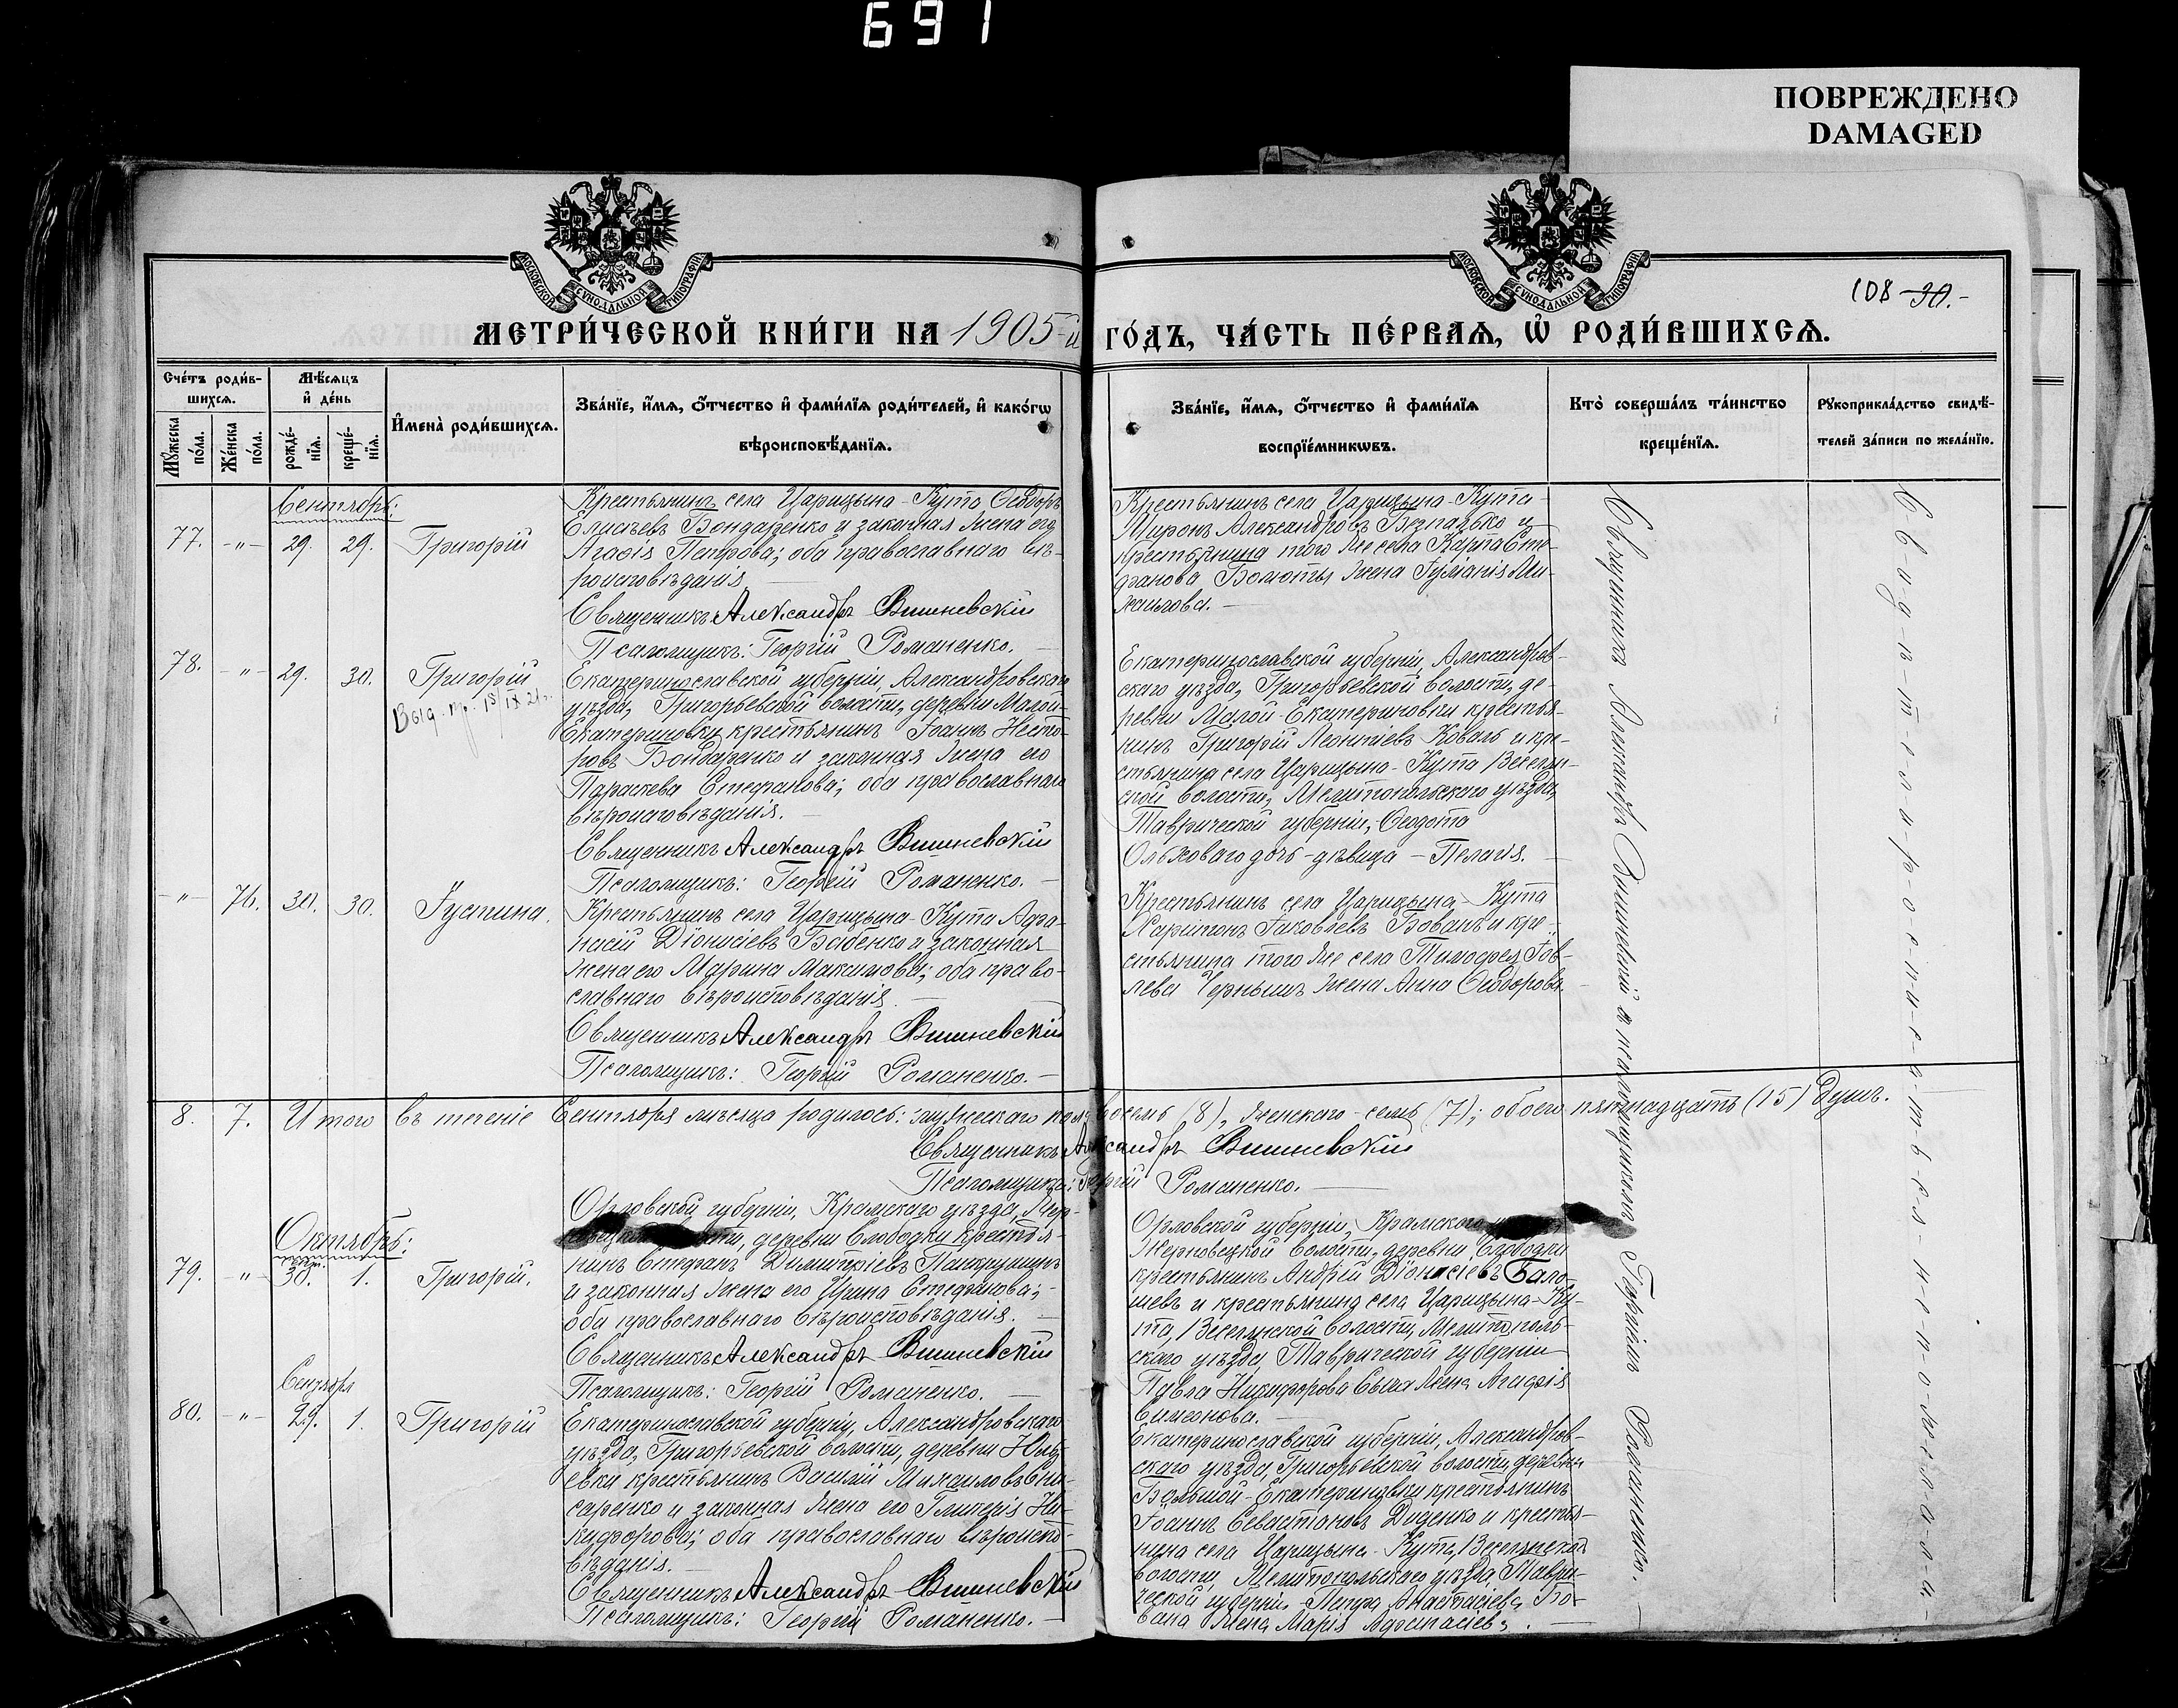 691
ПОВРЕЖДЕНО
DAMAGED
МОСКОВСКОЙ СѴНОДАЛЬНОЙ ТИПОГРАФІИ
МОСКОВСКОЙ СѴНОДАЛЬНОЙ ТИПОГРАФІИ
108 30.-
МЕТРИ́ЧЕСКОЙ КНИ́ГИ НА 1905-й ГО́ДЪ, ЧА́СТЬ ПЕ́РВАѦ, Ѽ РОДИ́ВШИХСѦ.
Сче́тъ роди́в-
шихсѧ.
Мѣ́сѧцъ
и҆ де́нь
Мꙋ́жеска по́ла.
Же́нска по́ла.
рожде́-
нїѧ.
креще́-
нїѧ.
И҆мена̀ роди́вшихсѧ.
Зва́нїе, и҆́мѧ, ѻ҆́тчество и҆ фами́лїѧ роди́телей, и҆ како́гѡ
вѣроисповѣ́данїѧ.
Зва́нїе, и҆́мѧ, ѻ҆́тчество и҆ фами́лїѧ
воспрїе́мникѡвъ.
Кто̀ соверша́лъ та́инство
креще́нїѧ.
Рꙋкоприкла́дство свидѣ́-
телей за́писи по жела́нїю.
Сентябрь:
77. -"- 29. 29. Григорій
Крестьянинъ села Царицына-Кута Ѳеодоръ
Елисѣевъ Бондаренко и законная жена его
Агаѳія Петрова; оба православнаго вѣ-
роисповѣданія
Священникъ Александръ Вишневскій
Псаломщикъ: Георгій Романенко.
Крестьянинъ села Царицына-Кута-
Миронъ Александровъ Безпалько и
крестьянина того же села Карпа Сте-
фанова жена Іуліанія Ми-
хаилова.
78. -"- 29. 30. Григорій
Выд. 15/IX 21г.
Екатеринославской губерніи, Александровскаго
уѣзда, Григорьевской волости, деревни Малой-
Екатериновки крестьянинъ Іоаннъ Несто-
ровъ Бондаренко и законная жена его
Параскева Стефанова; оба православнаго
вѣроисповѣданія.
Священникъ Александръ Вишневскій
Псаломщикъ: Георгій Романенко.
Екатеринославской губерніи, Александров-
скаго уѣзда, Григорьевской волости, де-
ревни Малой-Екатериновки крестья-
нинъ Григорій Леонтіевъ Коваль и кре-
стьянина села Царицына-Кута Веселян-
ской волости, Мелитопольскаго уѣзда,
Таврической губерніи, Ѳеодота
Ольховаго дочь-дѣвица-Пелагія.
-"- 76. 30. 30. Іустина.
Крестьянинъ села Царицына-Кута Аѳа-
насій Діонисіевъ Бабенко и законная
жена его Марина Максимова; оба право-
славнаго вѣроисповѣданія.
Священникъ Александръ Вишневскій
Псаломщикъ: Георгій Романенко.
Крестьянинъ села Царицына-Кута
Харитонъ Іаковлевъ Бованъ и кре-
стьянина того же села Тимоѳея Іов-
лева Чернышъ жена Анна Ѳеодорова.
8. 7. Итого въ теченіе Сентября мѣсяца родилось: мужескаго пола восемь (8), женскаго-семь (7); обоего пятнадцать (15) душъ.
Священникъ Александръ Вишневскій
Псаломщикъ: Георгій Романенко.
Октябрь:
79. -"- 30. 1. Григорій.
Орловской губерніи, Кромскаго уѣзда, Жер-
деревни Слободки крестья-
нинъ Стефанъ Димитріевъ
и законная жена его Ирина Стефанова;
оба православнаго вѣроисповѣданія.
Священникъ Александръ Вишневскій
Псаломщикъ: Георгій Романенко.
Орловской губерніи, Кромскаго
Жерновецкой волости, деревни Слободки
крестьянинъ Андрей Діонисіевъ Бало-
шевъ и крестьянина села Царицына-Ку-
та, Веселянской волости, Мелитополь-
скаго уѣзда, Таврической губерніи
Павла Никифорова жена Агаѳія
Симеонова.
Сентября
80. -"- 29. 1. Григорій
Екатеринославской губерніи, Александровскаго
уѣзда, Григорьевской волости, деревни
евки крестьянинъ Василій Михаиловъ Сни-
саренко и законная жена его Гликерія Ни-
кифорова; оба православнаго вѣроиспо-
вѣданія.
Священникъ Александръ Вишневскій
Псаломщикъ: Георгій Романенко.
Екатеринославской губерніи, Александров-
скаго уѣзда, Григорьевской волости, деревни
Большой-Екатериновки крестьянинъ
Іоаннъ Севастіановъ Диденко и крестья-
нина села Царицына-Кута, Веселянской
волости, Мелитопольскаго уѣзда, Таври-
ческой губерніи Петра Анастасіева Бо-
вана жена Марія Аѳанасіева.
Священникъ Александръ Вишневскій и псаломщикъ Георгій Романенко.